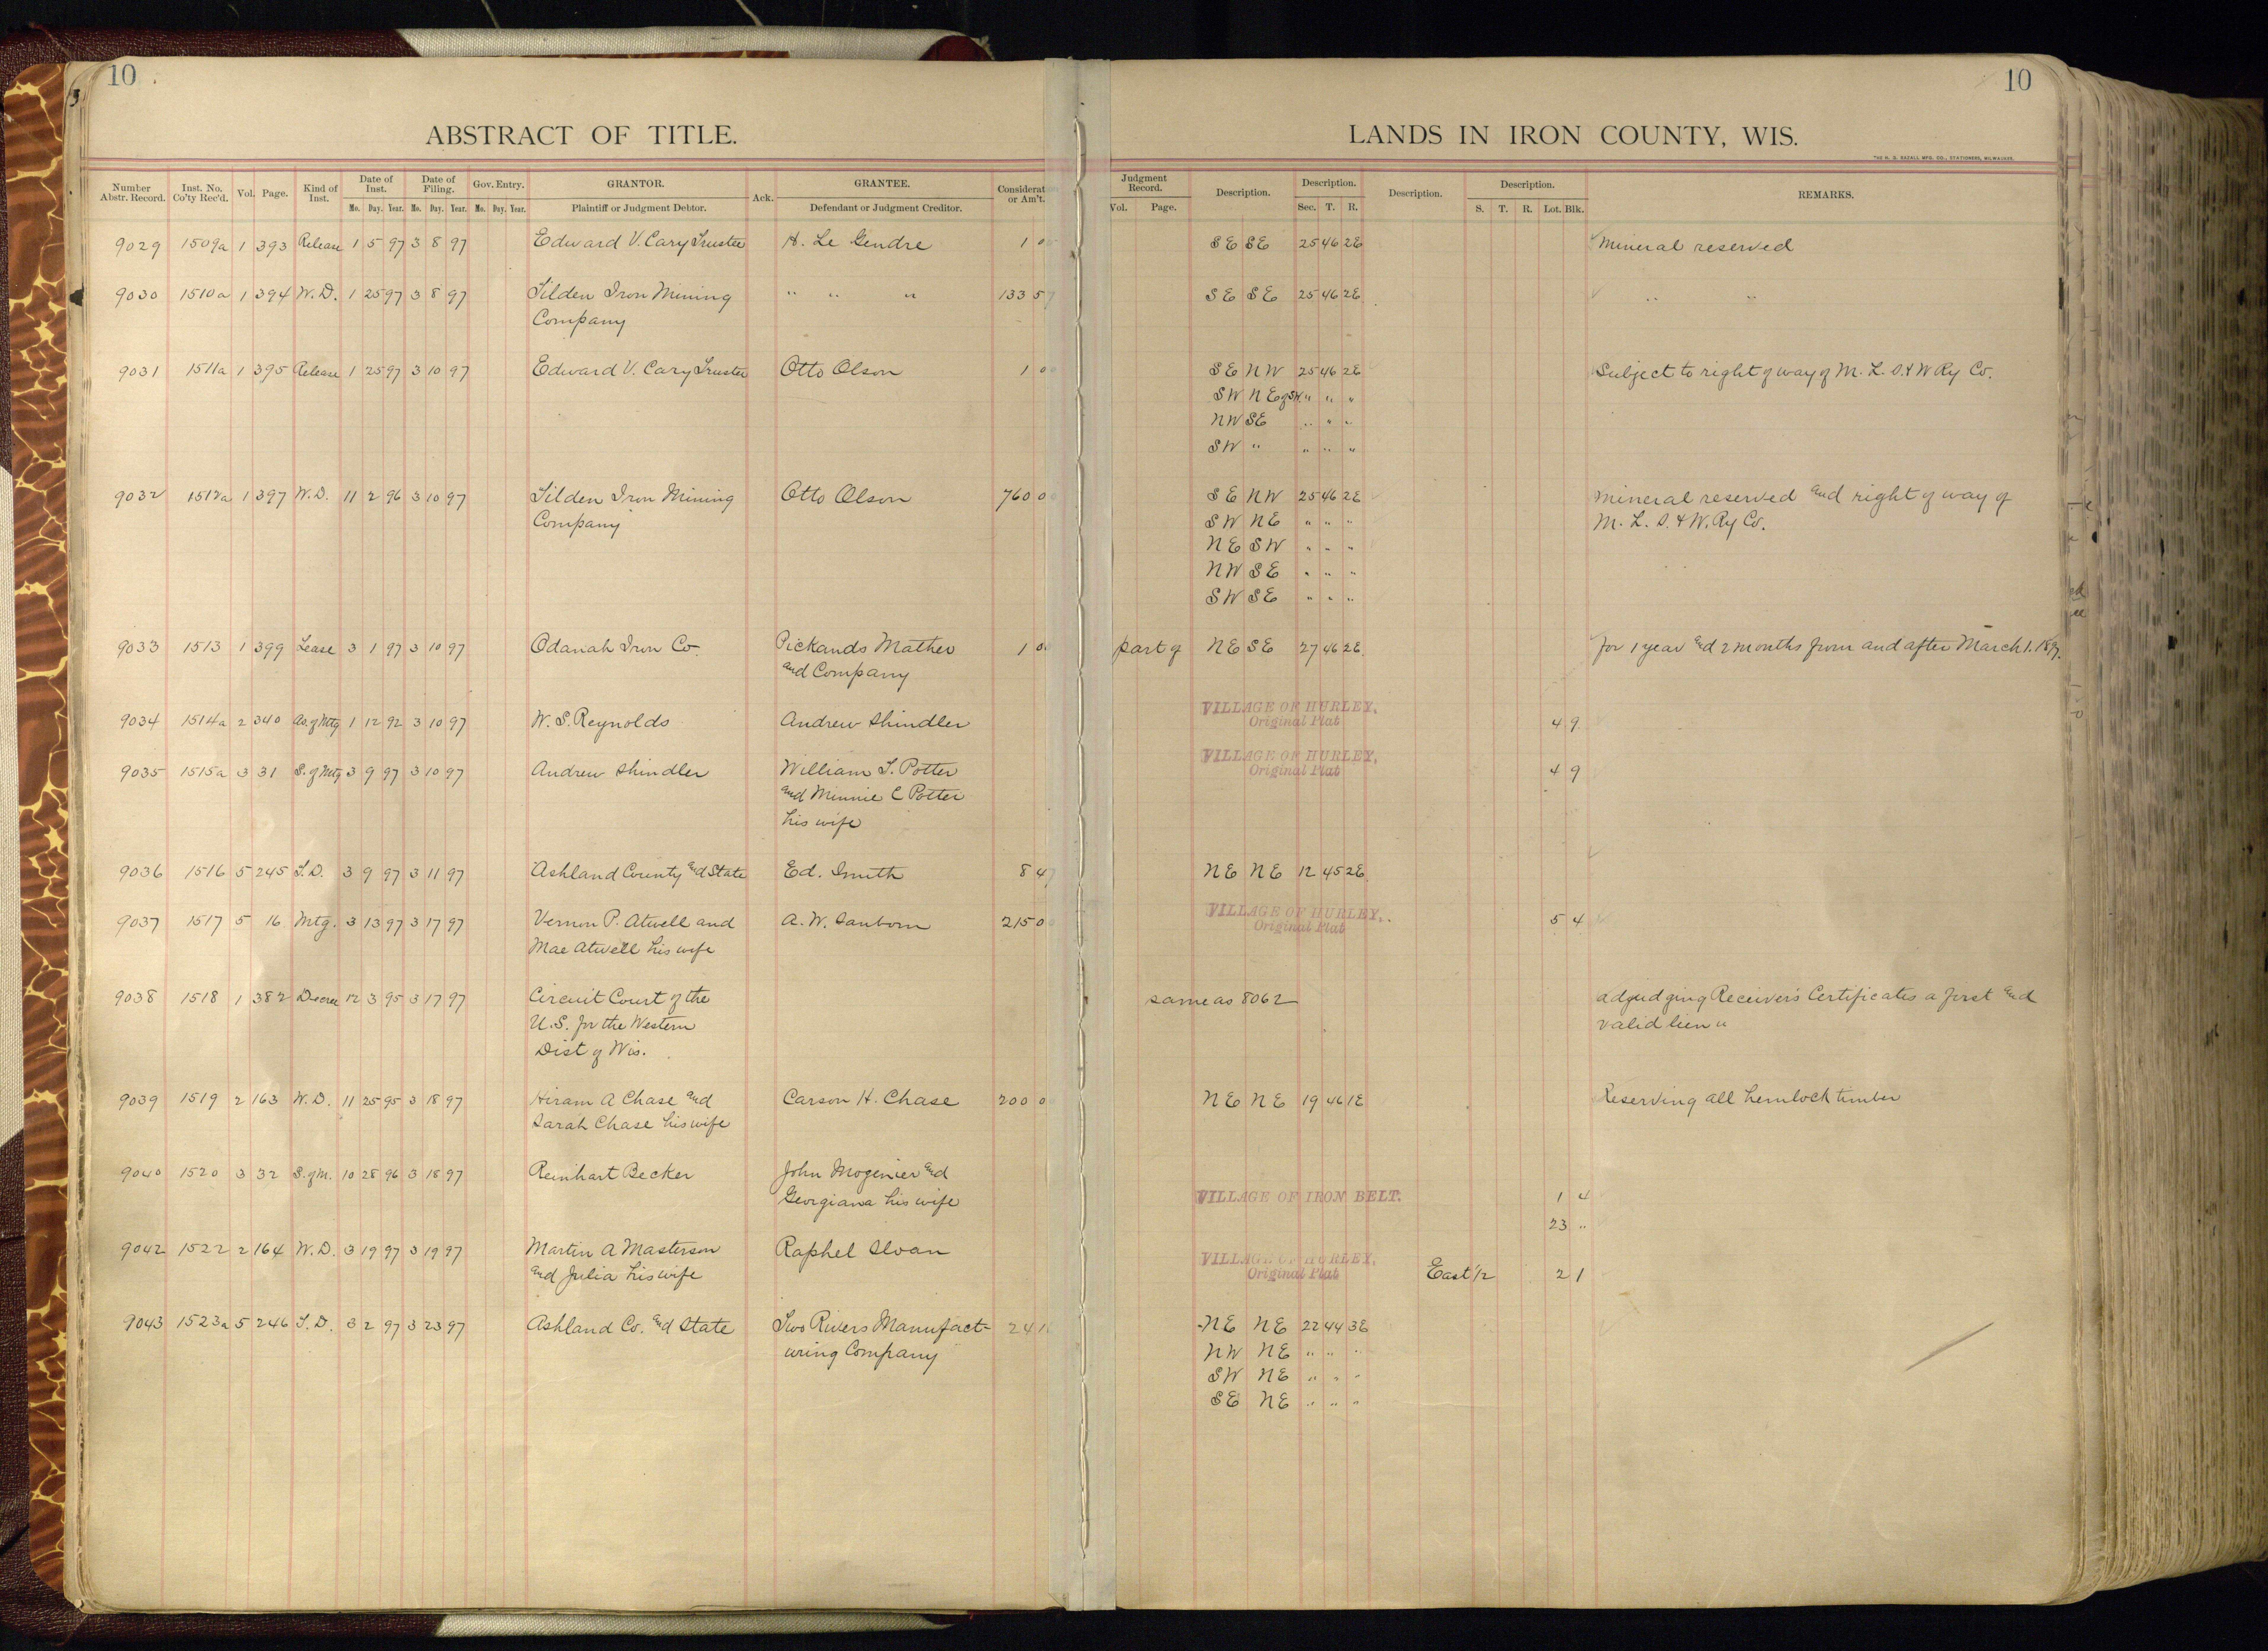 10
10
ABSTRACT OF TITLE.
LANDS IN IRON COUNTY, WIS.
THE H. G. RAZALL MFG. CO., STATIONERS, MILWAUKEE.
Number Abstr. Record. Inst. No. Co'ty Rec'd. Vol. Page. Kind of Inst. Date of Inst. Mo. Day. Year. Date of Filing. Mo. Day. Year. Gov. Entry. Mo. Day. Year. GRANTOR. Plaintiff or Judgment Debtor. Ack. GRANTEE. Defendant or Judgment Creditor. Considerat or Am't. Judgment Record. Vol. Page. Description. Description. Sec. T. R. Description. Description. S. T. R. Lot. Blk. REMARKS.
9029 1509a 1 393 Release 1 5 97 3 8 97 Edward V. Cary Trustee H. Le Gendre 1 0 SE SE 25 46 2E Mineral reserved
9030 1510a 1 394 W.D. 1 25 97 3 8 97 Tilden Iron Mining " " " 133 57 SE SE 25 46 2E " "
Company
9031 1511a 1 395 Release 1 25 97 3 10 97 Edward V. Cary Trustee Otto Olson 1 00 SE NW 25 46 2E Subject to right of way of M. L. S. & W Ry Co.
SW NE of SW " " "
NW SE " " "
SW " " " "
9032 1512a 1 397 W.D. 11 2 96 3 10 97 Tilden Iron Mining Otto Olson 760 00 SE NW 25 46 2E Mineral reserved and right of way of
Company SW NE " " " M. L. S. & W. Ry Co.
NE SW " " "
NW SE " " "
SW SE " " "
9033 1513 1 399 Lease 3 1 97 3 10 97 Odanah Iron Co. Pickands Mather 1 0 part of NE SE 27 46 2E for 1 year and 2 months from and after March 1. 1897.
and Company
9034 1514a 2 340 As. of Mtg 1 12 92 3 10 97 W. S. Reynolds Andrew Shindler VILLAGE OF HURLEY, 4 9
Original Plat
9035 1515a 3 31 S. of Mtg 3 9 97 3 10 97 Andrew Shindler William T. Potter VILLAGE OF HURLEY, 4 9
and Minnie C Potter Original Plat
his wife
9036 1516 5 245 T.D. 3 9 97 3 11 97 Ashland County and State Ed. Smith 8 47 NE NE 12 45 2E
9037 1517 5 16 Mtg. 3 13 97 3 17 97 Vernon P. Atwell and A. W. Sanborn 215 00 VILLAGE OF HURLEY, 5 4
Mae Atwell his wife Original Plat
9038 1518 1 382 Decree 12 3 95 3 17 97 Circuit Court of the same as 8062 adjudging Receiver's Certificates a first and
U.S. for the Western valid lien "
Dist of Wis.
9039 1519 2 163 W.D. 11 25 95 3 18 97 Hiram A Chase and Carson H. Chase 200 0 NE NE 19 46 1E Reserving all hemlock timber
Sarah Chase his wife
9040 1520 3 32 S. of M. 10 28 96 3 18 97 Reinhart Becker John Mogenier and
Georgiana his wife VILLAGE OF IRON BELT. 1 4
23 "
9042 1522 2 164 W.D. 3 19 97 3 19 97 Martin A Masterson Raphel Sloan VILLAGE OF HURLEY,
and Julia his wife Original Plat East 1/2 2 1
9043 1523a 5 246 T.D. 3 2 97 3 23 97 Ashland Co. and State Two Rivers Manufact- 24 1 NE NE 22 44 3E
uring Company NW NE " " "
SW NE " " "
SE NE " " "